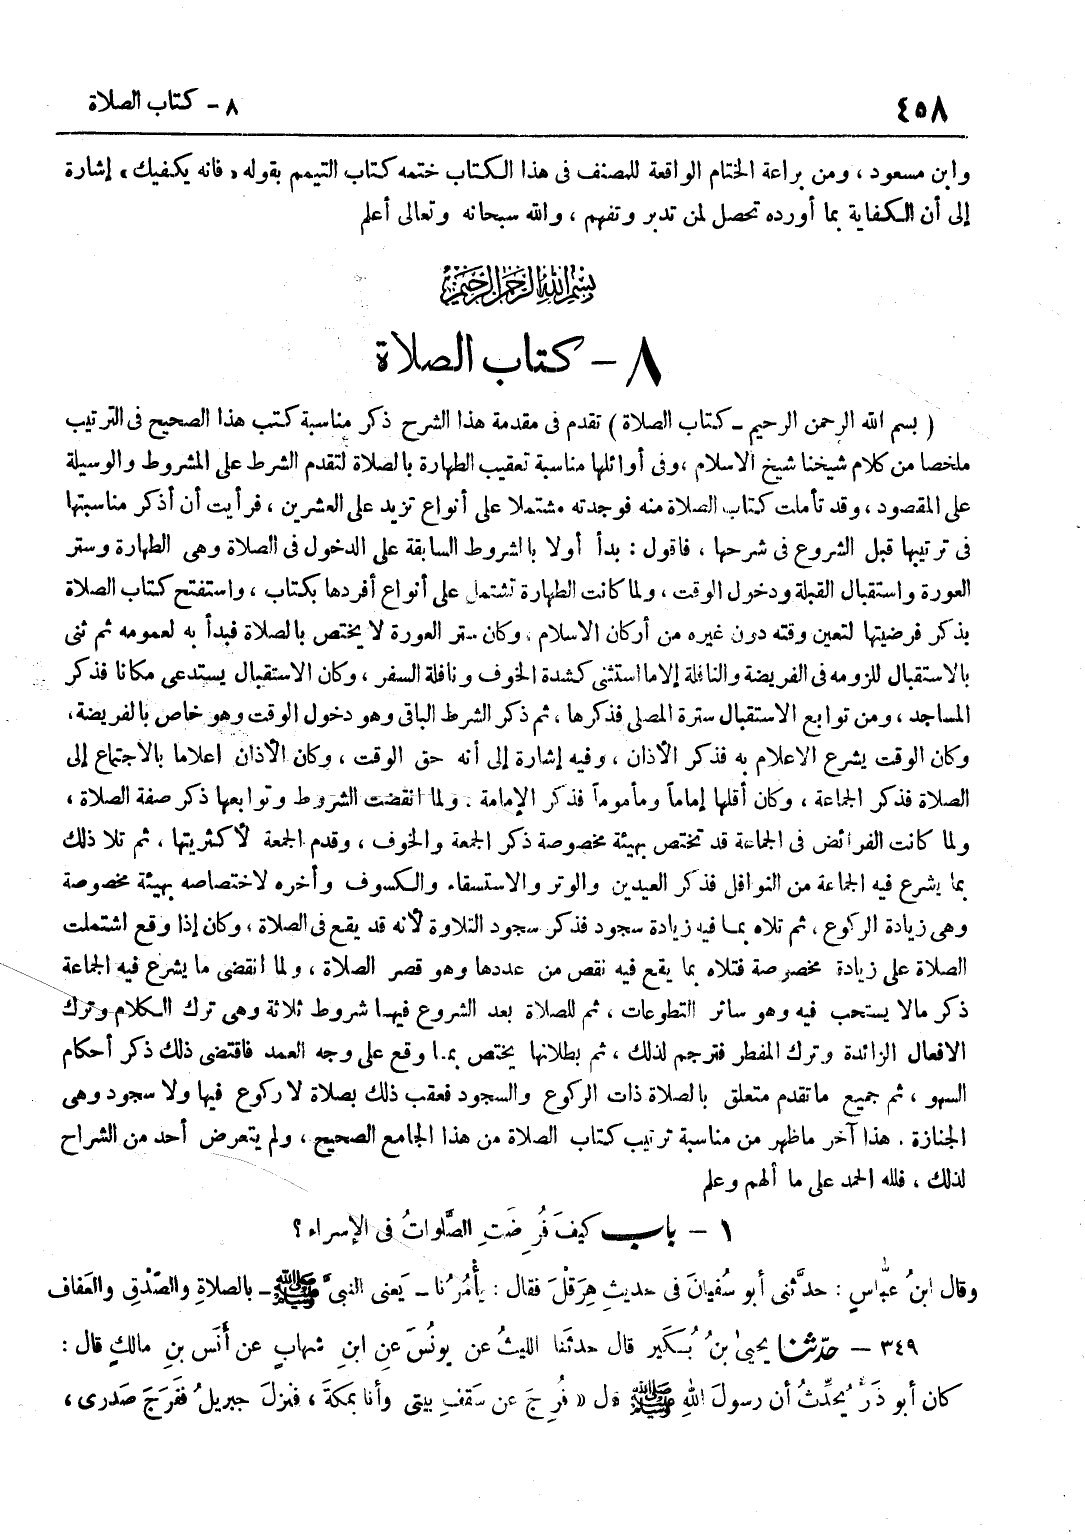 ٤٥٨
٨ - كتاب الصلاة
وابن مسعود ، ومن براعة الختام الواقعة للمصنف فى هذا الكتاب ختمه كتاب التيمم بقوله « فانه يكفيك » إشارة
إلى أن الكفاية بما أورده تحصل لمن تدبر وتفهم ، والله سبحانه وتعالى أعلم
بسم الله الرحمن الرحيم
٨ - كتاب الصلاة
( بسم الله الرحمن الرحيم - كتاب الصلاة ) تقدم فى مقدمة هذا الشرح ذكر مناسبة كتب هذا الصحيح فى الترتيب
ملخصا من كلام شيخنا شيخ الاسلام ، وفى أوائلها مناسبة تعقيب الطهارة بالصلاة لتقدم الشرط على المشروط والوسيلة
على المقصود ، وقد تأملت كتاب الصلاة منه فوجدته مشتملا على أنواع تزيد على العشرين ، فرأيت أن أذكر مناسبتها
فى ترتيبها قبل الشروع فى شرحها ، فاقول : بدأ أولا بالشروط السابقة على الدخول فى الصلاة وهى الطهارة وستر
العورة واستقبال القبلة ودخول الوقت ، ولما كانت الطهارة تشتمل على أنواع أفردها بكتاب ، واستفتح كتاب الصلاة
بذكر فرضيتها لتعين وقته دون غيره من أركان الاسلام ، وكان ستر العورة لا يختص بالصلاة فبدأ به لعمومه ثم ثنى
بالاستقبال للزومه فى الفريضة والنافلة إلا ما استثنى كشدة الخوف ونافلة السفر ، وكان الاستقبال يستدعى مكانا فذكر
المساجد ، ومن توابع الاستقبال سترة المصلى فذكرها ، ثم ذكر الشرط الباقى وهو دخول الوقت وهو خاص بالفريضة ،
وكان الوقت يشرع الاعلام به فذكر الأذان ، وفيه إشارة إلى أنه حق الوقت ، وكان الأذان اعلاما بالاجتماع إلى
الصلاة فذكر الجماعة ، وكان أقلها إماماً ومأموماً فذكر الإمامة . ولما انقضت الشروط وتوابعها ذكر صفة الصلاة ،
ولما كانت الفرائض فى الجماعة قد تختص بهيئة مخصوصة ذكر الجمعة والخوف ، وقدم الجمعة لأكثريتها ، ثم تلا ذلك
بما يشرع فيه الجماعة من النوافل فذكر العيدين والوتر والاستسقاء والكسوف وأخره لاختصاصه بهيئة مخصوصة
وهى زيادة الركوع ، ثم تلاه بما فيه زيادة سجود فذكر سجود التلاوة لأنه قد يقع فى الصلاة ، وكان إذا وقع اشتملت
الصلاة على زيادة مخصوصة فتلاه بما يقع فيه نقص من عددها وهو قصر الصلاة ، ولما انقضى ما يشرع فيه الجماعة
ذكر مالا يستحب فيه وهو سائر التطوعات ، ثم للصلاة بعد الشروع فيها شروط ثلاثة وهى ترك الكلام وترك
الافعال الزائدة وترك المفطر فترجم لذلك ، ثم بطلانها يختص بما وقع على وجه العمد فاقتضى ذلك ذكر أحكام
السهو ، ثم جميع ماتقدم متعلق بالصلاة ذات الركوع والسجود فعقب ذلك بصلاة لا ركوع فيها ولا سجود وهى
الجنازة . هذا آخر ماظهر من مناسبة ترتيب كتاب الصلاة من هذا الجامع الصحيح ، ولم يتعرض أحد من الشراح
لذلك ، فلله الحمد على ما ألهم وعلم
١ - باب كيفَ فُرِضَتِ الصَّلواتُ فى الإسراء ؟
وقال ابنُ عبّاسٍ : حدَّثنى أبو سُفيانَ فى حديثِ هِرَقْلَ فقال : يأْمُرُنا - يَعنى النبىَّ ﷺ - بالصلاةِ والصِّدْقِ والعَفاف
٣٤٩ - حدّثنا يحيىٰ بنُ بُكَير قال حدثَنا الليثُ عن يونُسَ عنِ ابنِ شهابٍ عن أنَسِ بنِ مالكٍ قال :
كان أبو ذَرٍّ يُحدِّثُ أن رسولَ اللهِ ﷺ قال « فُرِجَ عن سَقفِ بيتى وأنا بمكةَ ، فنزلَ جبريلُ ففَرَجَ صَدرى ،